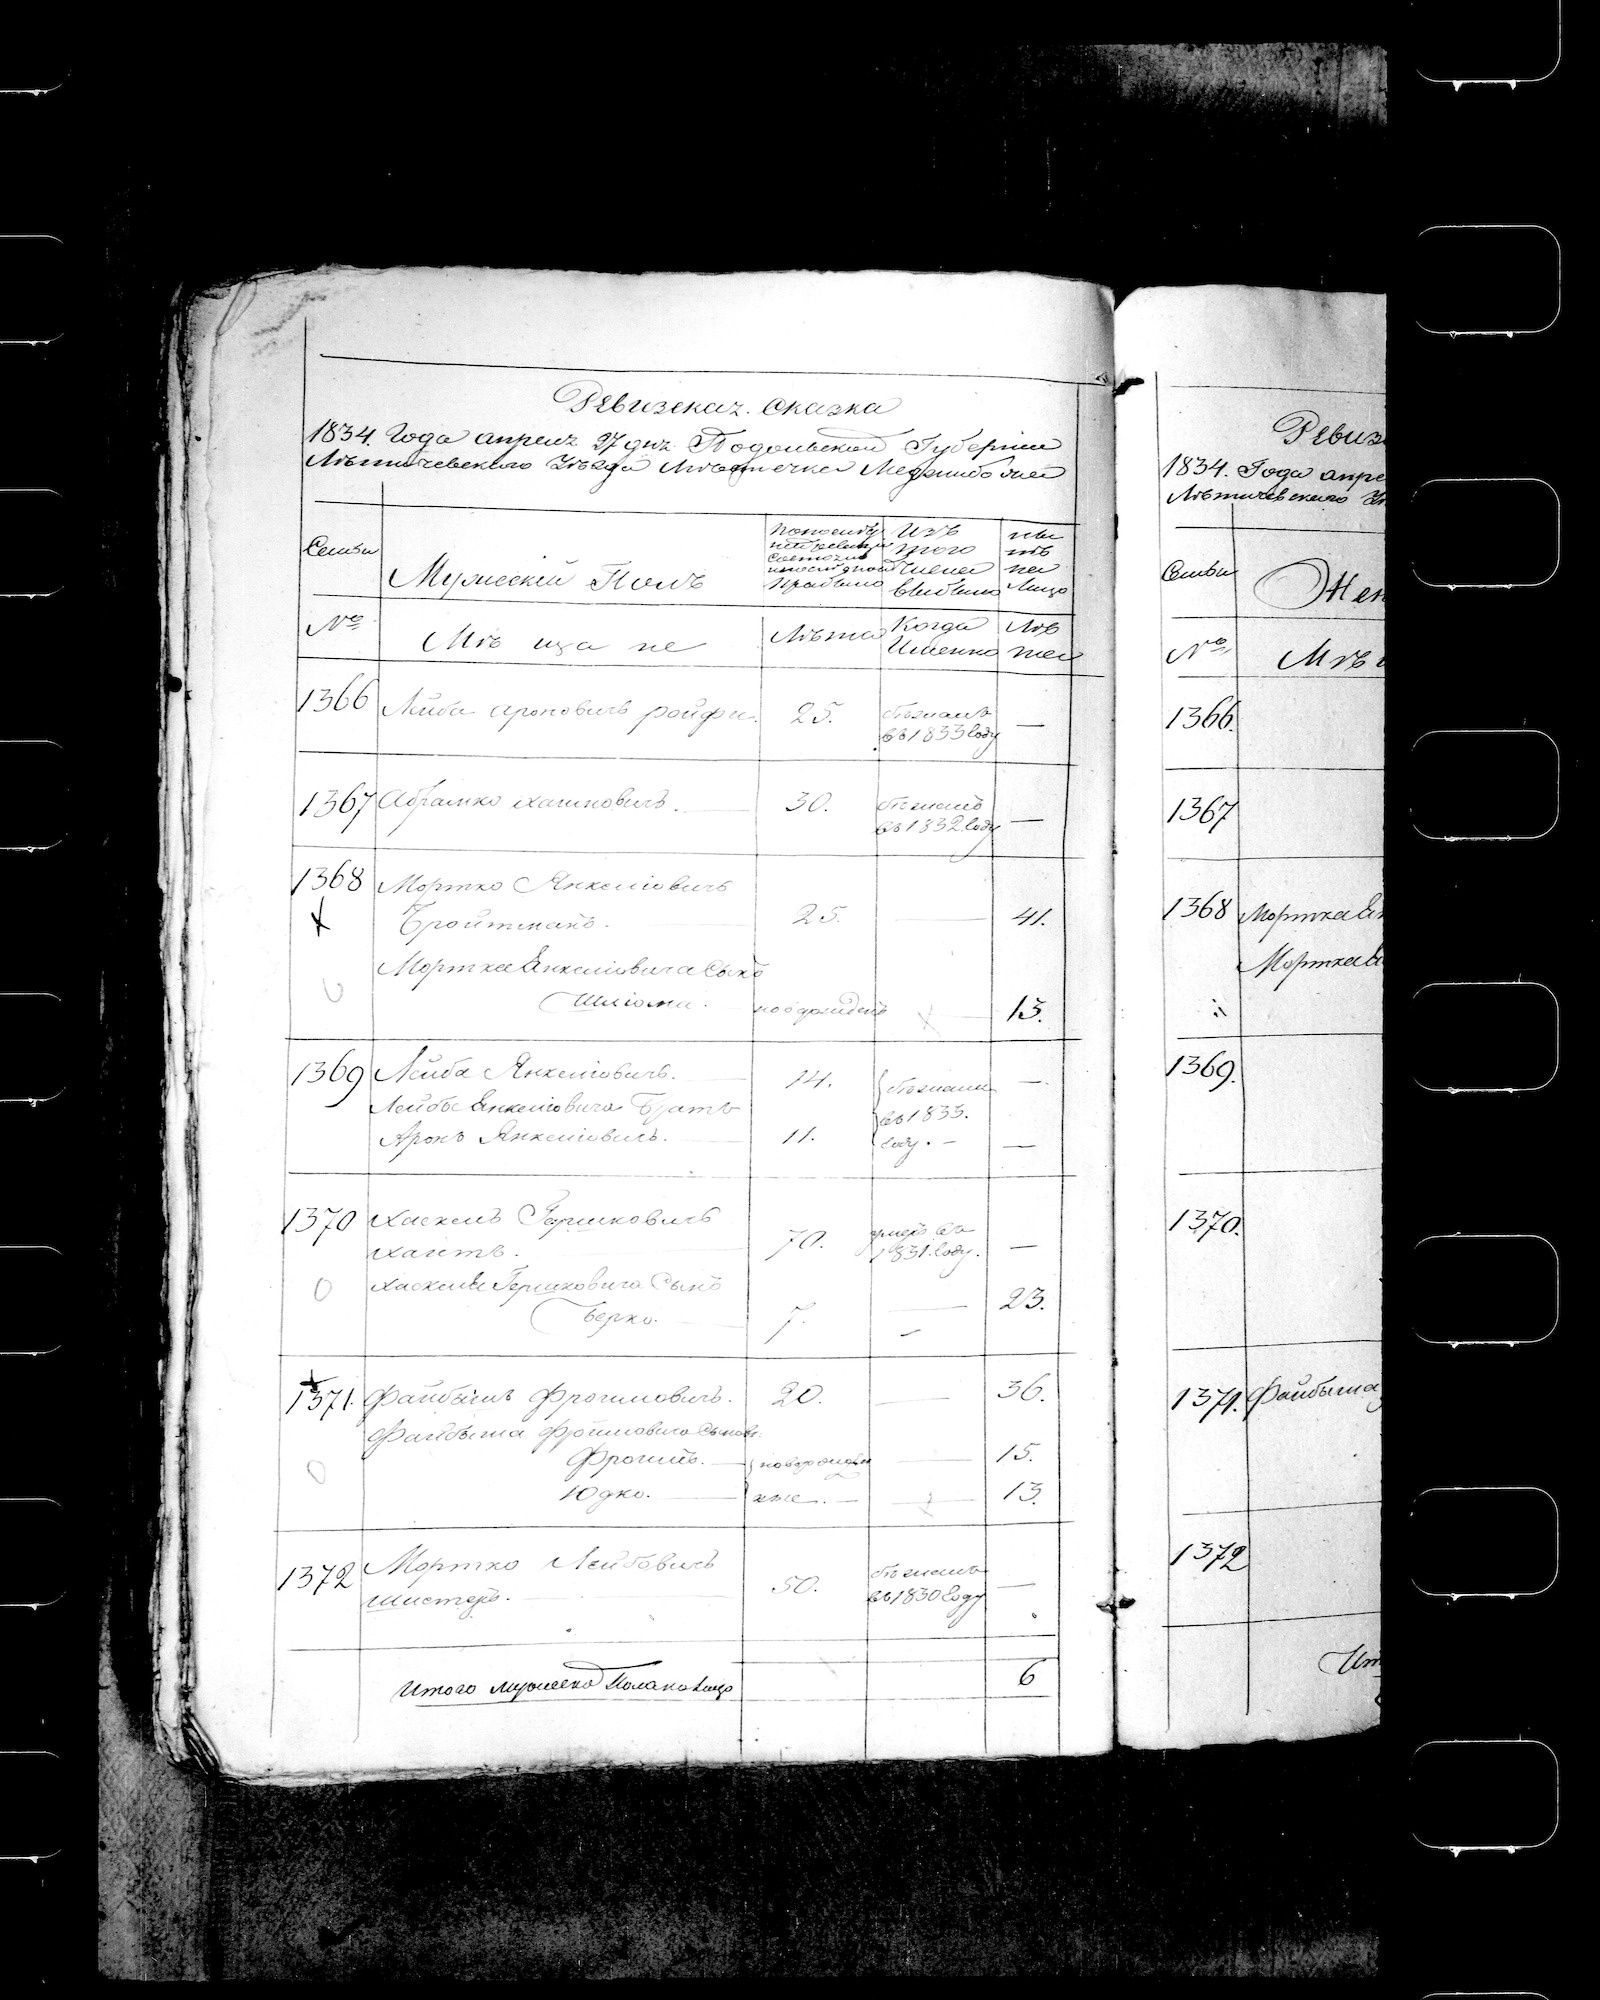 Ревизская Сказка
1834. Года апреля 27 дня Подольской Губернии
Летичевского Уезда Местечка Меджибожа
Семьи
Мужеский Полъ
По последней ревизии состояло и после оной прибыло
Изъ того числа выбыло
Ныне на Лицо
№
Мещане
Лета
Когда Именно
Летъ
1366 Лейба Ароновичъ ройфи. 25. бежалъ въ 1833 году —
1367 Абрамко Хаимовичъ. 30. бежалъ въ 1832 году —
1368 Мортко Янкелiовичъ
Бройтманъ. 25. — 41.
Мортка Янкелiовича Сынъ
Шлiома. новорожденъ — 13.
1369 Лейба Янкелiовичъ. 14. бежали —
Лейбы Янкелiовича Братъ въ 1833.
Аронъ Янкелiовичъ. 11. году. —
1370 Хаскель Гершковичъ
70. умеръ въ 1831. году. —
Хаскеля Гершковича Сынъ
Берко. 7. — 23.
1371. Файбышъ Фроимовичъ. 20. — 36.
Файбыша Фроимовича Сыновья
Фроимъ. новорожден — 15.
Юдко. ные. — 13.
1372 Мортко Лейбовичъ
Шистеръ. 50. бежалъ въ 1830 году —
Итого мужеска Пола на лицо 6
Ревиз
1834. Года апре
Летичевского Уе
Семьи
Жен
№
Ме
1366.
1367
1368 Мортка Ян
Мортка
1369.
1370.
1371. Файбыша
1372
Ит